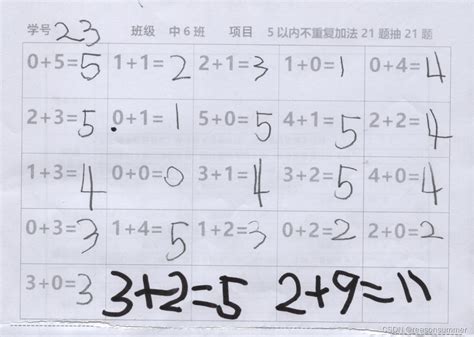 学号 23 班级 中6班 项目 5以内不重复加法21题抽21题
0+5=5 1+1=2 2+1=3 1+0=1 0+4=4
2+3=5 0+1=1 5+0=5 4+1=5 2+2=4
1+3=4 0+0=0 3+1=4 3+2=5 4+0=4
0+3=3 1+4=5 1+2=3 0+2=2 2+0=2
3+0=3 3+2=5 2+9=11
CSDN @reasonsummer